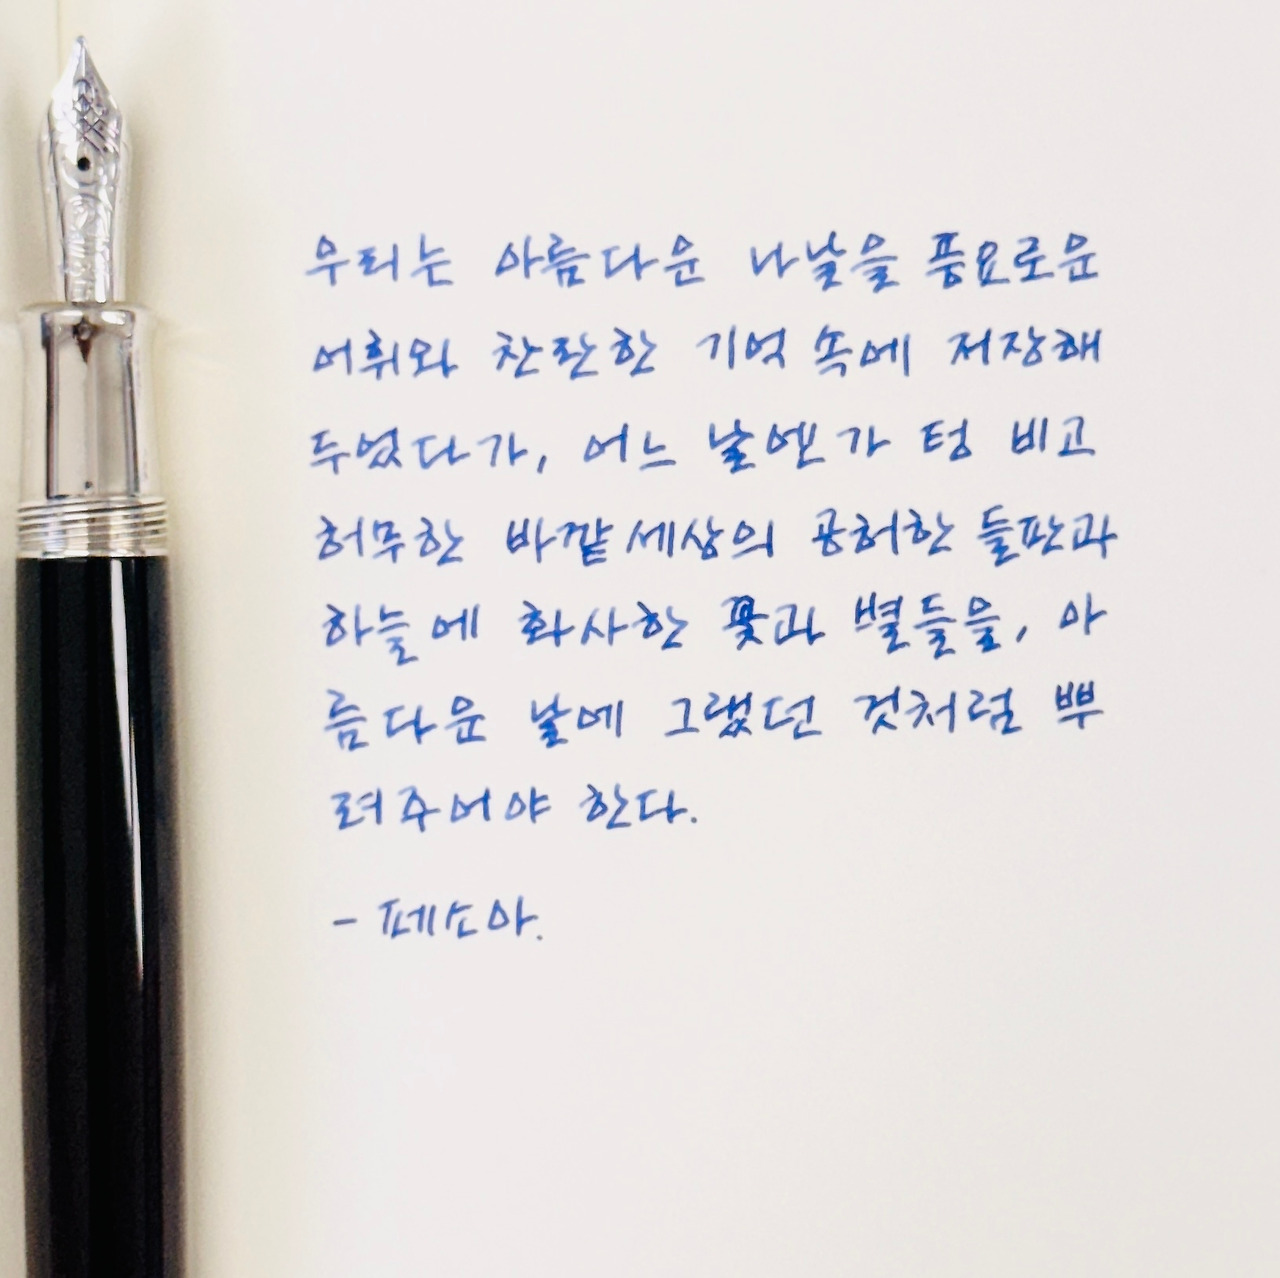 우리는 아름다운 나날을 풍요로운
어휘와 찬란한 기억 속에 저장해
두었다가, 어느 날엔가 텅 비고
허무한 바깥세상의 공허한 들판과
하늘에 화사한 꽃과 별들을, 아
름다운 날에 그랬던 것처럼 뿌
려주어야 한다.
- 페소아.